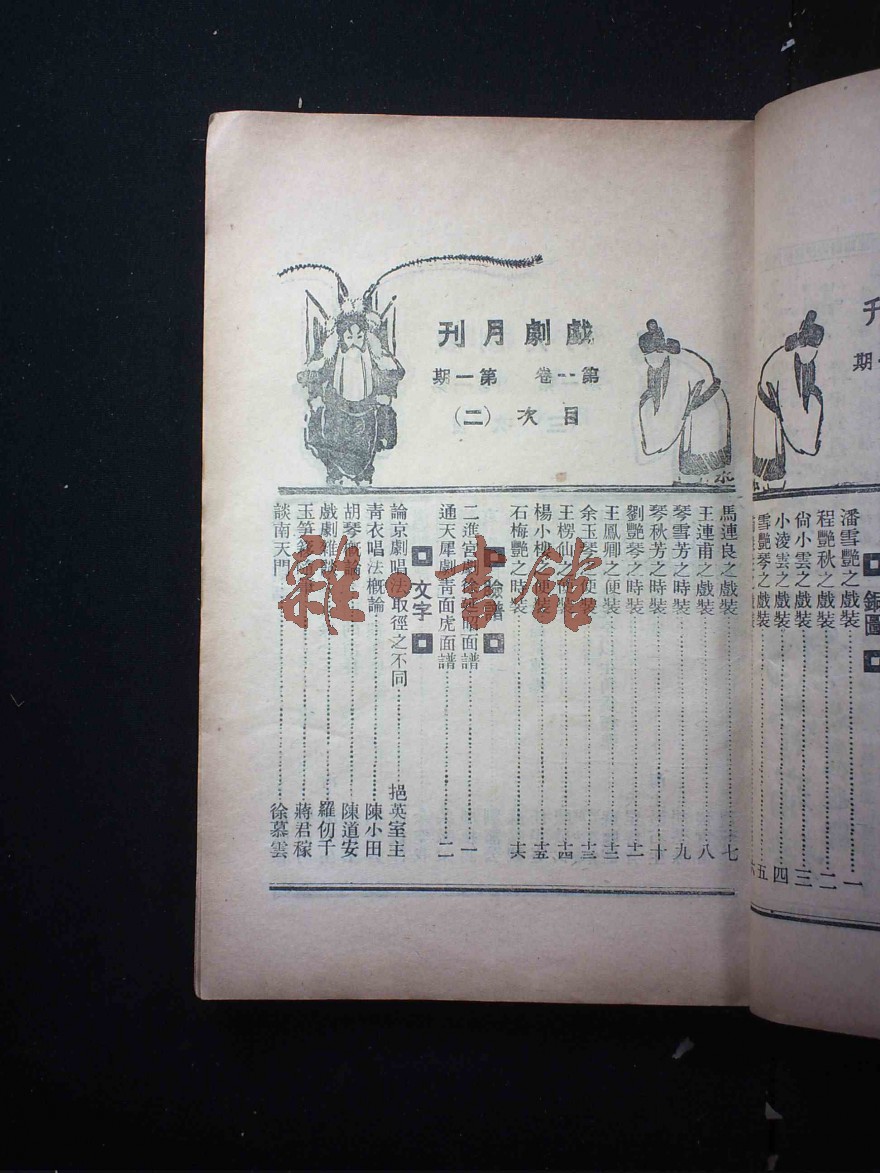 刊
期
銅圖
潘雪艷之戲裝 一
程艷秋之戲裝 二
尙小雲之戲裝 三
小淩雲之戲裝 四
雪艷琴之戲裝 五
之戲裝 六
戲劇月刊
第一卷 第一期
目次(二)
馬連良之戲裝 七
王連甫之戲裝 八
琴雪芳之時裝 九
琴秋芳之時裝 十
劉艷琴之時裝 十一
王鳳卿之便裝 十二
余玉琴之便裝 十三
王楞仙之便裝 十四
楊小樓之便裝 十五
石梅艷之時裝 十六
臉譜
二進宮劇徐延昭面譜 一
通天犀劇青面虎面譜 二
文字
論京劇唱法取徑之不同 挹英室主
青衣唱法槪論 陳小田
胡琴槪論 陳道安
戲劇雜 羅仞千
玉笋 蔣君稼
談南天門 徐慕雲
雜·書館